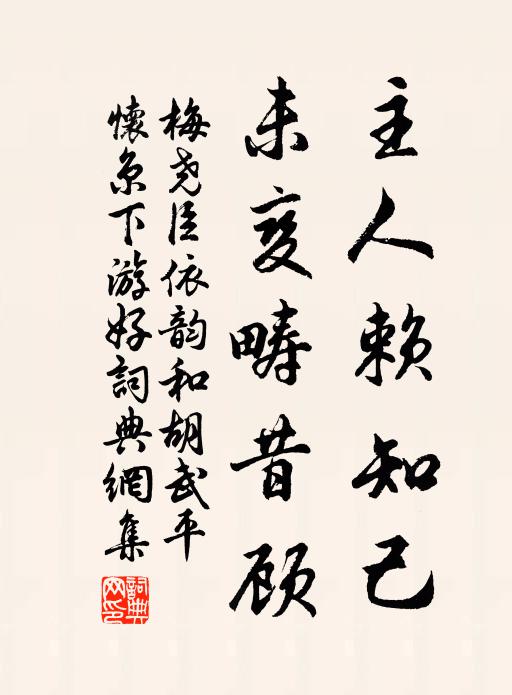 主人赖知己
未变畴昔顾
梅尧臣依韵和胡武平
懐京下游好詞典網集
詞典网印